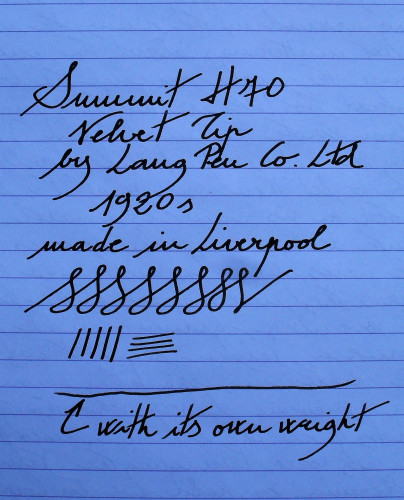 Summit H70
Velvet Tip
by Lang Pen Co. Ltd
1920s
made in Liverpool
with its own weight